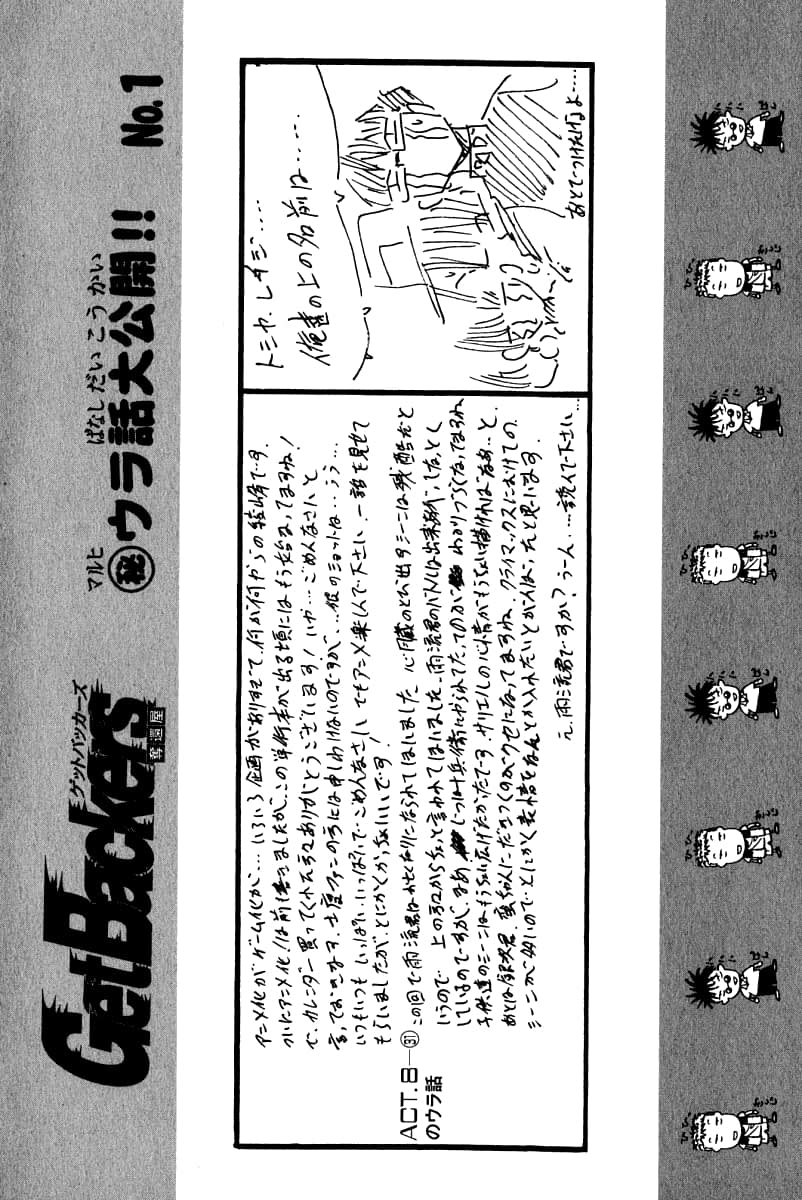 GetBackers
ゲットバッカーズ
奪還屋
マルヒ ばなしだいこうかい
㊙ウラ話大公開!! No.1
アニメ化がゲーム化が…いろいろ企画がありすぎて、何が何やらの綾峰です。
ついにアニメ化!は前に書きましたが、この単行本が出る頃にはもう始まってますね!
で、カレンダー買ってくれた方々ありがとうございます!いや…ごめんなさいと
言っておきます。士度ファンの方には申しわけないのですが、…彼のショットは…うう…
いつもいつも、いっぱいいっぱいで、ごめんなさい。でもアニメ楽しんで下さい、一話を見せて
もらいましたが、とにかくかっちょいいです!
ACT.8―㉛のウラ話
この回で雨流君はおとなりになられてしまいました。心臓のとび出すシーンは残酷だと
いうので、上の方からちょっと言われてしまいました。雨流君のバトルは出来
しているのですが、まあ じつは十兵衛にやられてた、てのが わかりづらくなってますね
子供達のシーンはもうちょい広げたかったです。サリエルの心情がもうちょい描ければなあ…と。
あとは銀次君、蛮ちゃんにだきつくのがクセになってますね。クライマックスにおけての、
シーンが多いので、とにかく表情をなんとか入れたいとがんばったと思います。
え、雨流君ですか?うーん、…読んで下さい…
トミヤ、レイジ……
俺達の上の名前は……
あとでつけたげるよ…